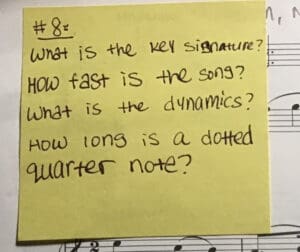 #8:
What is the key signature?
How fast is the song?
What is the dynamics?
How long is a dotted
quarter note?